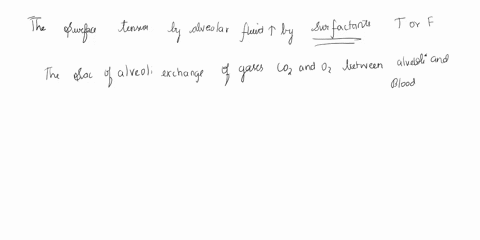 The Surface tension by alveolar fluid ↑ by surfactants T or F
The sac of alveoli exchange of gases CO2 and O2 between alveoli and
Blood